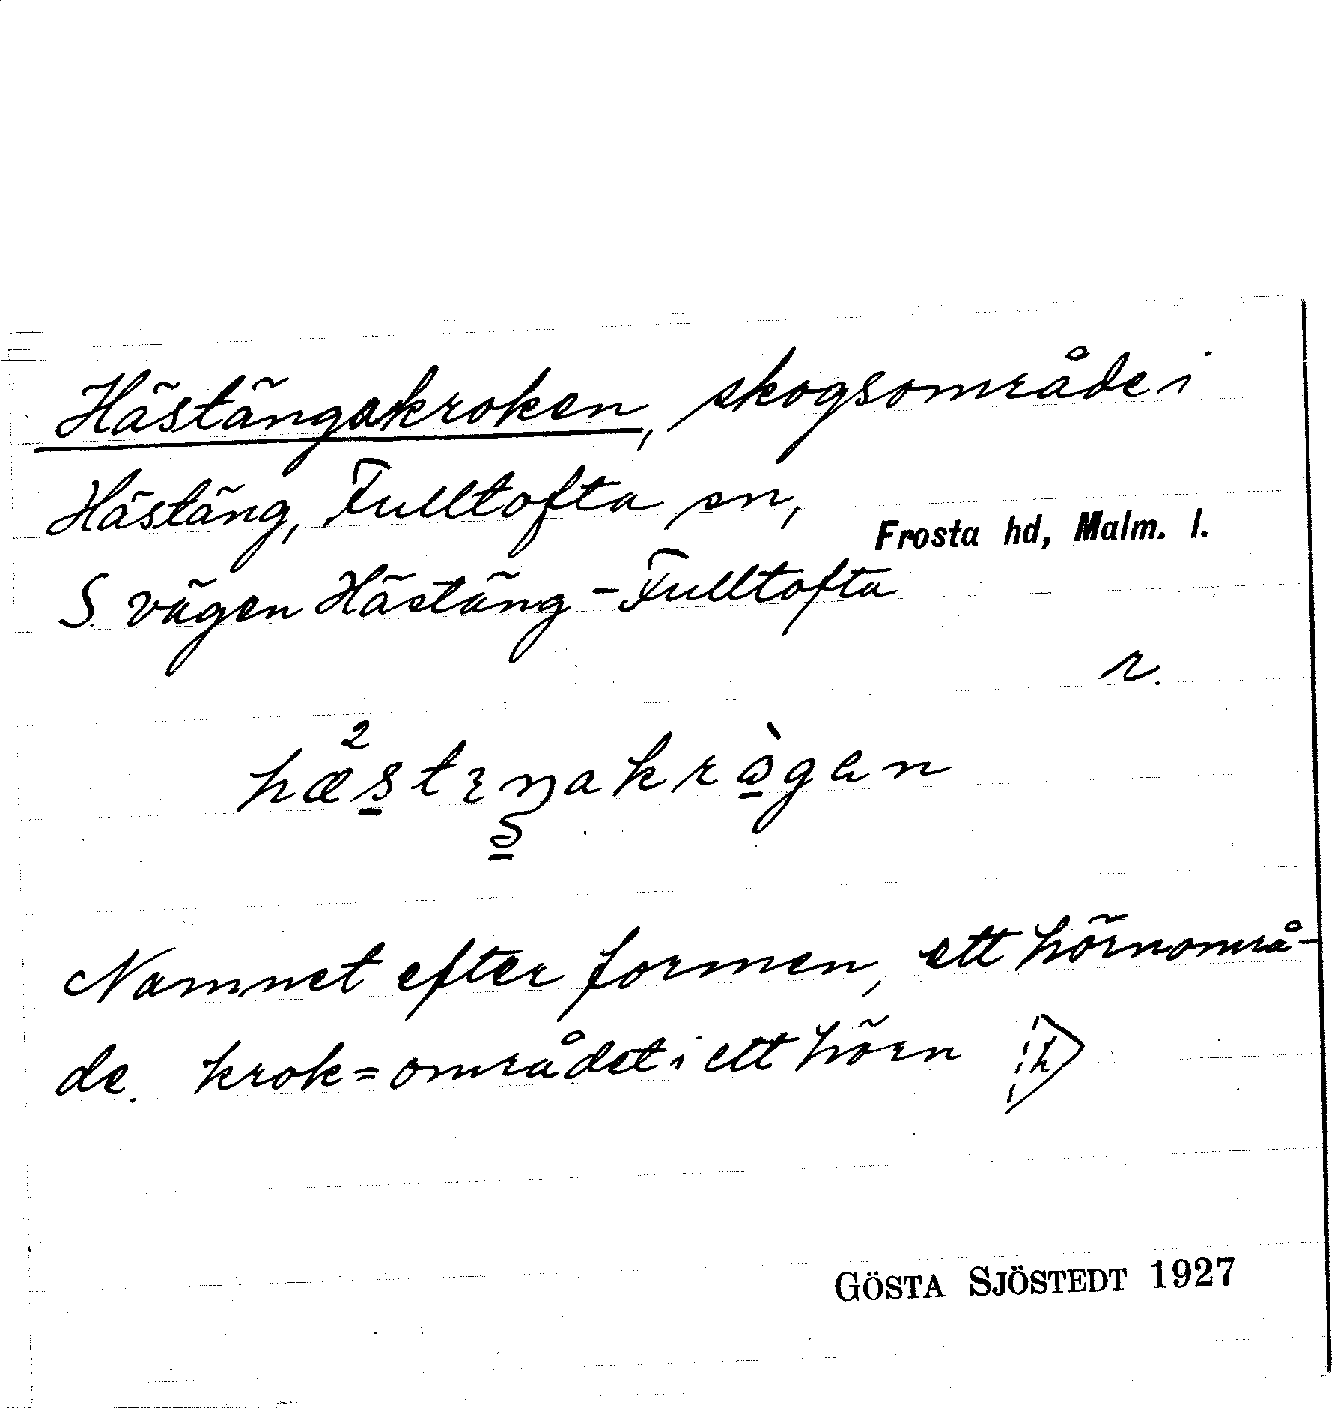 Hästängakroken, skogsområde i
Hästäng, Fulltofta sn,
Frosta hd, Malm. l.
S. vägen Hästäng - Fulltofta
r.
Namnet efter formen, ett hörnområ-
de. krok = området i ett hörn
k
GÖSTA SJÖSTEDT 1927